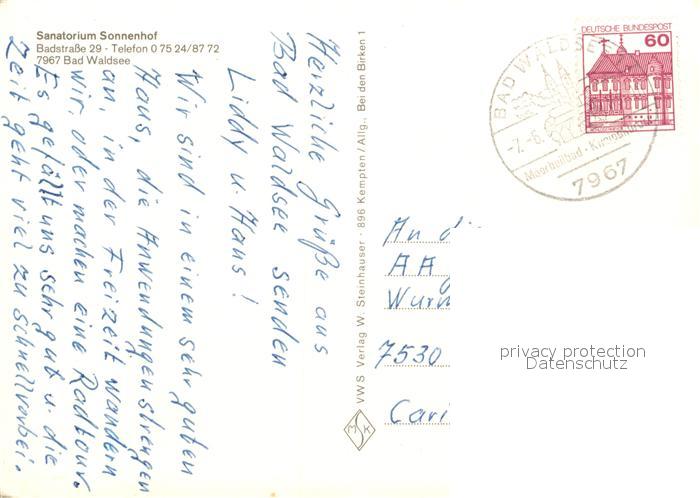 Sanatorium Sonnenhof
Badstraße 29 - Telefon 0 75 24/87 72
7967 Bad Waldsee
Herzliche Grüße aus
Bad Waldsee senden
Liddy u. Hans!
Wir sind in einem sehr guten
Haus, die Anwendungen strengen
an, in der Freizeit wandern
wir oder machen eine Radtour.
Es gefällt uns sehr gut u. die
Zeit geht viel zu schnell vorbei.
VWS Verlag W. Steinhauser · 896 Kempten / Allg., Bei den Birken 1
MSK
DEUTSCHE BUNDESPOST
60
BAD WALDSEE
-7.-6.
Moorheilbad
7967
An d
AA
Wurm
7530
Cari
privacy protection
Datenschutz